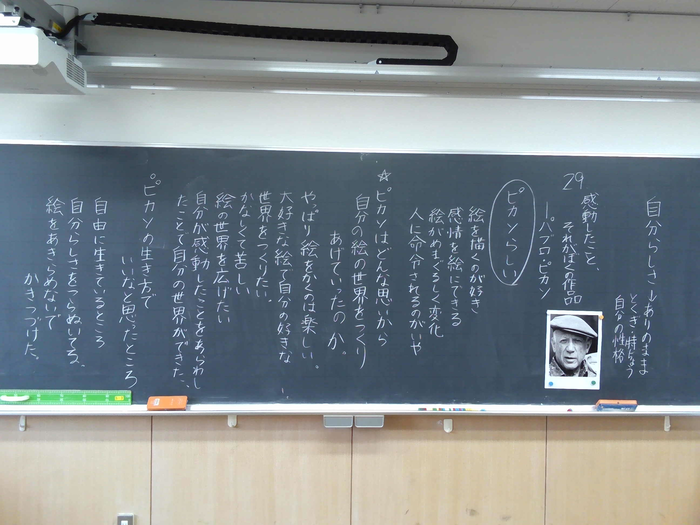 自分らしさ→ありのまま
とくぎ・特ちょう
自分の性格
29
感動したこと、
それがぼくの作品
―パブロ・ピカソ
ピカソらしい
絵を描くのが好き
感情を絵にできる
絵がめまぐるしく変化
人に命令されるのがいや
☆ピカソはどんな思いから
自分の絵の世界をつくり
あげていったのか。
やっぱり絵をかくのは楽しい。
大好きな絵で自分の好きな
世界をつくりたい。
かなしくて苦しい
絵の世界を広げたい
自分が感動したことをあらわし
たことで自分の世界ができた。
○ピカソの生き方で
いいなと思ったところ
自由に生きているところ
自分らしさをつらぬいてる。
絵をあきらめないで
かきつづけた。